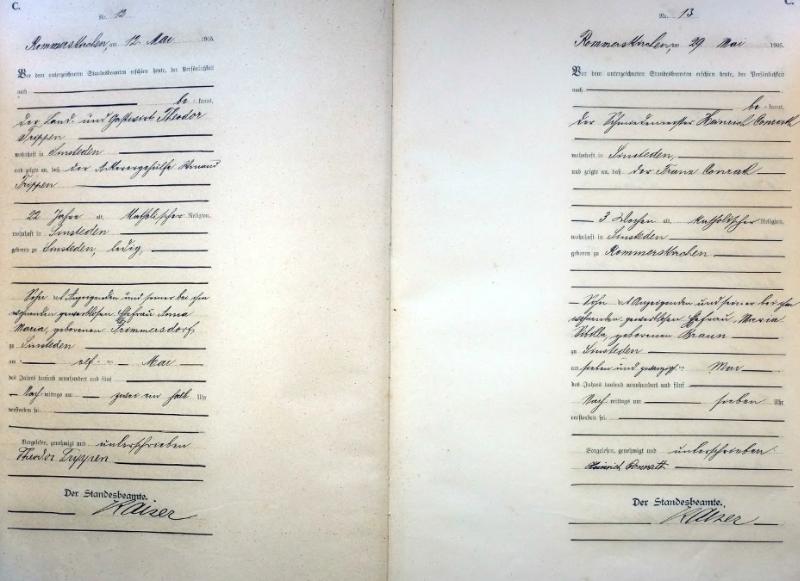 C.
Nr. 12
Rommerskirchen, am 12. Mai 1905.
Vor dem unterzeichneten Standesbeamten erschien heute, der Persönlichkeit
nach
be kannt,
der Land- und Gastwirt Theodor
Trippen
wohnhaft in Sinsteden
und zeigte an, daß der Ackerergehülfe
Trippen
22 Jahre alt, Katholischer Religion,
wohnhaft in Sinsteden
geboren zu Sinsteden, ledig,
Sohn des Anzeigenden und seiner bei ihm
wohnenden gewerblosen Ehefrau Anna
Maria, geborenen Frommersdorf
zu Sinsteden
am elf - Mai
des Jahres tausend neunhundert und fünf
Nach mittags um zwei ein halb Uhr
verstorben sei.
Vorgelesen, genehmigt und unterschrieben
Theodor Trippen
Der Standesbeamte.
Kaiser
C.
Nr. 13
Rommerskirchen, am 29. Mai 1905.
Vor dem unterzeichneten Standesbeamten erschien heute, der Persönlichkeit
nach
be kannt,
der Schmiedemeister Heinrich Conrath
wohnhaft in Sinsteden,
und zeigte an, daß der Franz Conrath
3 Wochen alt, Katholischer Religion,
wohnhaft in Sinsteden
geboren zu Rommerskirchen
Sohn des Anzeigenden und seiner bei ihm
wohnenden gewerblosen Ehefrau Maria
Sibilla, geborenen Braun
zu Sinsteden
am sieben und zwanzigsten Mai
des Jahres tausend neunhundert und fünf
Nach mittags um sieben Uhr
verstorben sei.
Vorgelesen, genehmigt und unterschrieben
Heinrich Conrath
Der Standesbeamte.
Kaiser